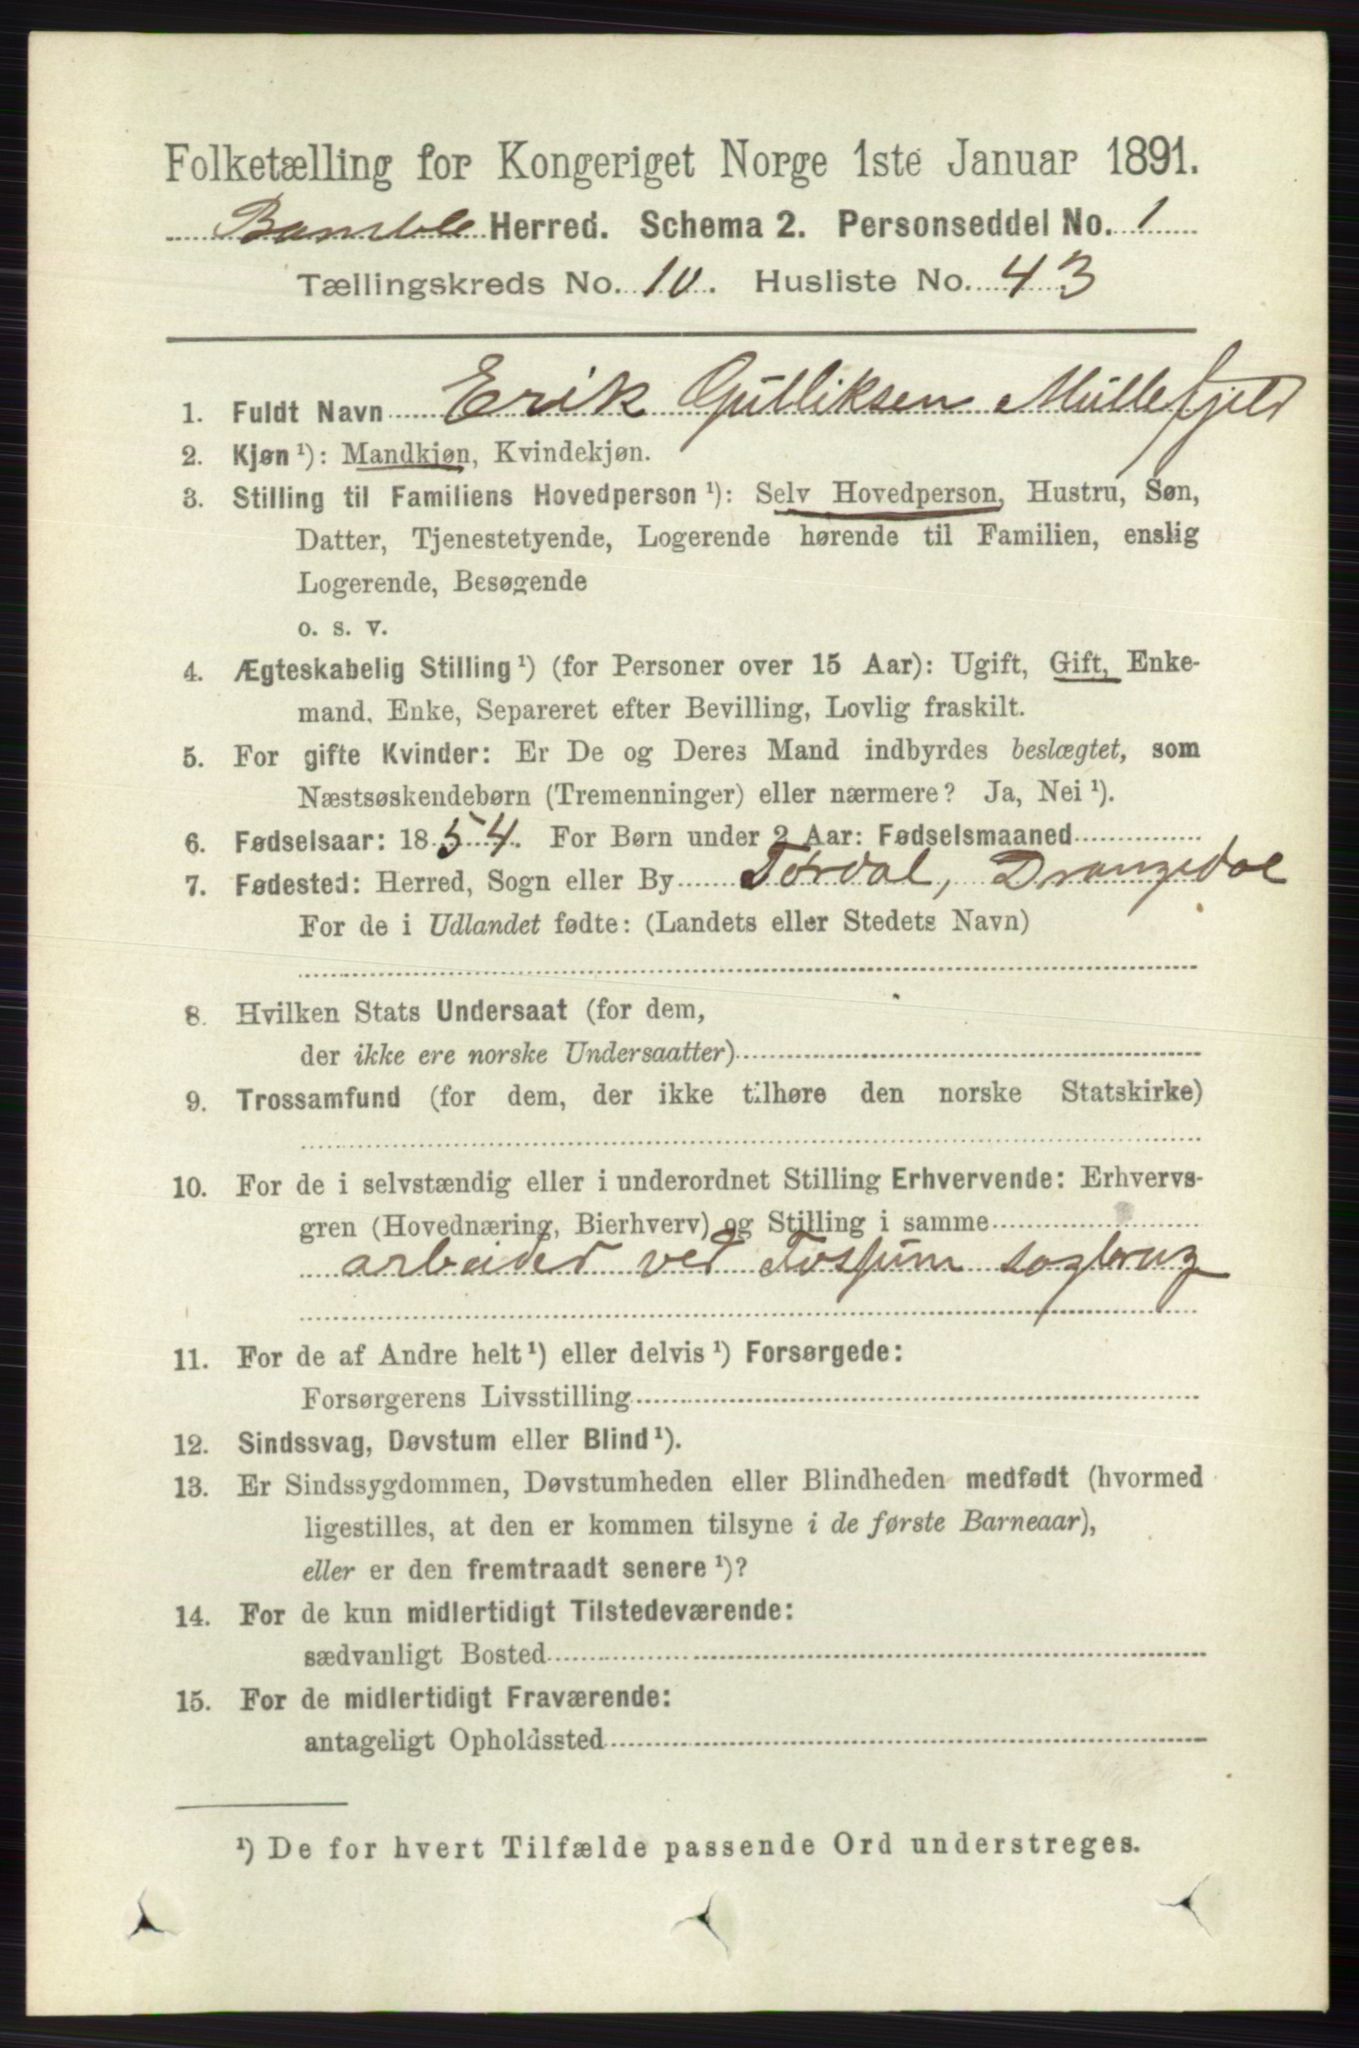 Folketælling for Kongeriget Norge 1ste Januar 1891.
Bamble Herred. Schema 2. Personseddel No. 1
Tællingskreds No. 10. Husliste No. 43
1. Fuldt Navn Erik Gulliksen Müllefjeld
2. Kjøn ¹): Mandkjøn, Kvindekjøn.
3. Stilling til Familiens Hovedperson ¹): Selv Hovedperson, Hustru, Søn,
Datter, Tjenestetyende, Logerende hørende til Familien, enslig
Logerende, Besøgende
o. s. v.
4. Ægteskabelig Stilling ¹) (for Personer over 15 Aar): Ugift, Gift, Enke-
mand, Enke, Separeret efter Bevilling, Lovlig fraskilt.
5. For gifte Kvinder: Er De og Deres Mand indbyrdes beslægtet, som
Næstsøskendebørn (Tremenninger) eller nærmere? Ja, Nei ¹).
6. Fødselsaar: 1854. For Børn under 2 Aar: Fødselsmaaned
7. Fødested: Herred, Sogn eller By Tørdal, Drangedal
For de i Udlandet fødte: (Landets eller Stedets Navn)
8. Hvilken Stats Undersaat (for dem,
der ikke ere norske Undersaatter)
9. Trossamfund (for dem, der ikke tilhøre den norske Statskirke)
10. For de i selvstændig eller i underordnet Stilling Erhvervende: Erhvervs-
gren (Hovednæring, Bierhverv) og Stilling i samme
arbeider ved Fossum sagbrug
11. For de af Andre helt ¹) eller delvis ¹) Forsørgede:
Forsørgerens Livsstilling
12. Sindssvag, Døvstum eller Blind ¹).
13. Er Sindssygdommen, Døvstumheden eller Blindheden medfødt (hvormed
ligestilles, at den er kommen tilsyne i de første Barneaar),
eller er den fremtraadt senere ¹)?
14. For de kun midlertidigt Tilstedeværende:
sædvanligt Bosted
15. For de midlertidigt Fraværende:
antageligt Opholdssted
¹) De for hvert Tilfælde passende Ord understreges.